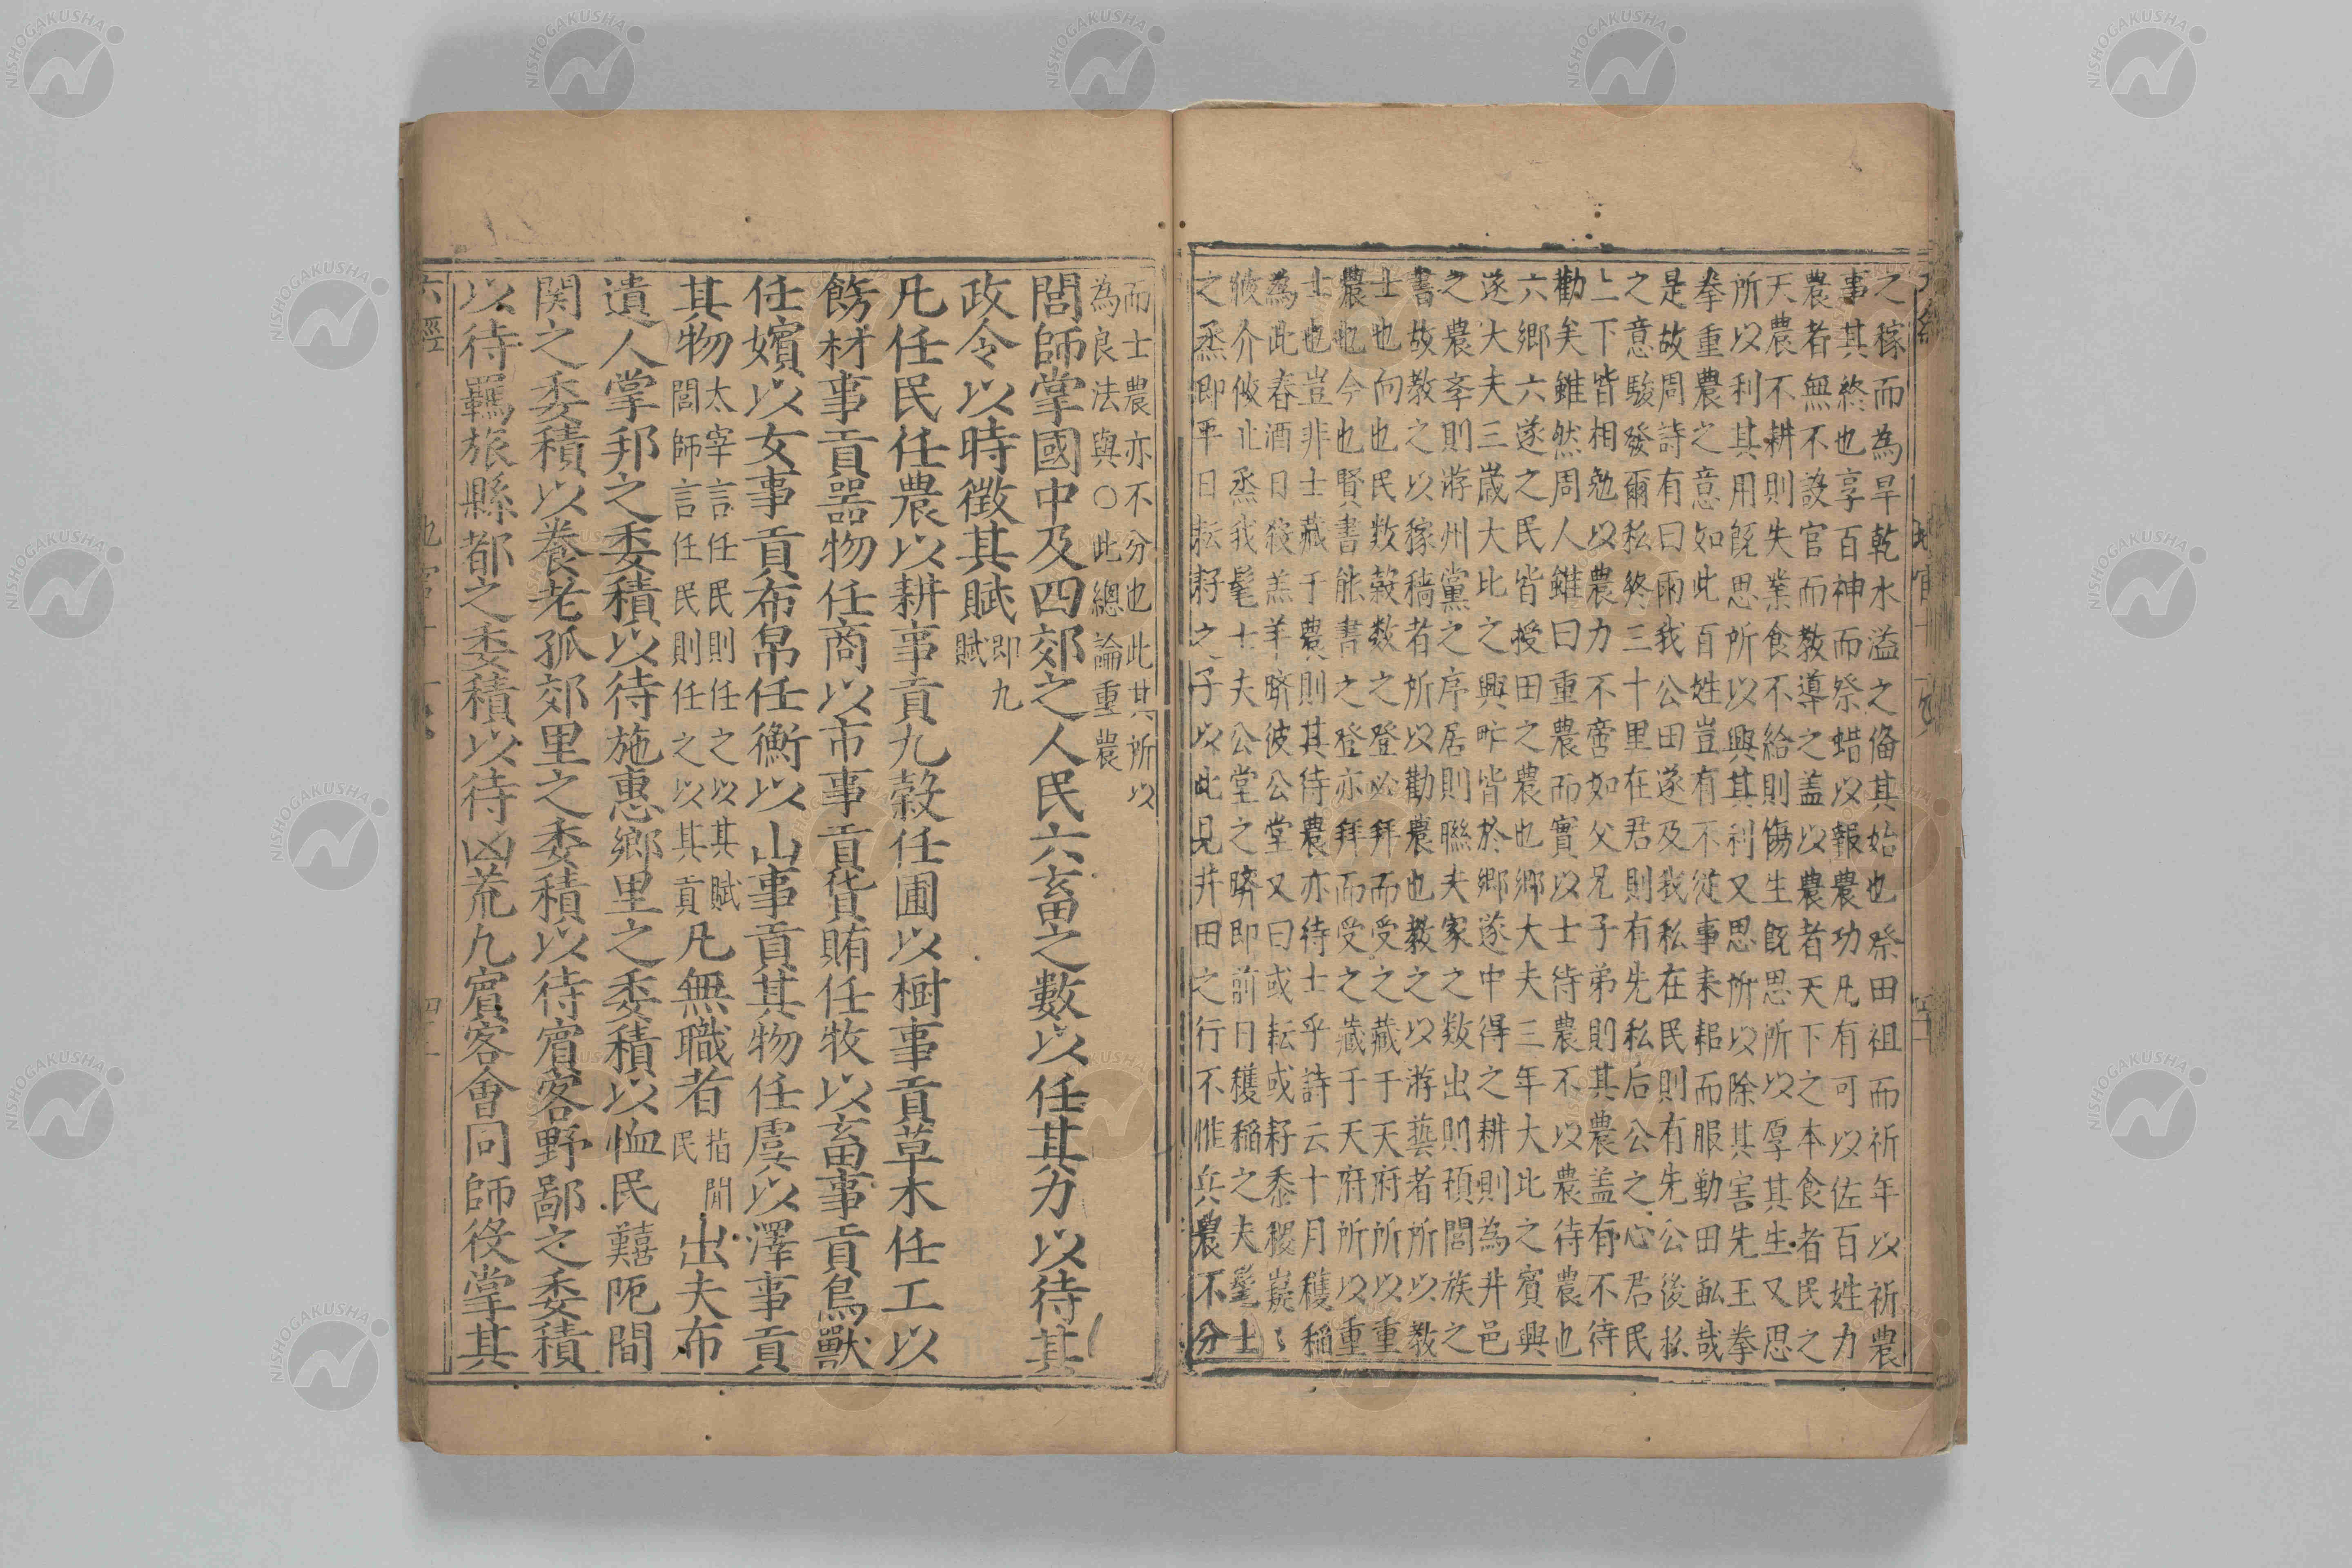 之稼而為旱乾水溢之俻其始也祭田祖而祈年以祈農
事其終也享百神而祭蜡以報農功凡有可以佐百姓力
農者無不設官而教導之盖以農者天下之本食者民之
天農不耕則失業食不給則傷生既思所以厚其生又思
所以利其用既思所以興其利又思所以除其害先王拳
拳重農之意如此百姓豈有不從事耒耜而服勤田畝哉
是故周詩有曰雨我公田遂及我私在民則有先公後私
之意駿發爾私終三十里在君則有先私后公之心君民
上下皆相勉以農力不啻如父兄子弟則其農盖有不待
勸矣雖然周人雖曰重農而實以士待農不以農待農也
六鄉六遂之民皆授田之農也鄉大夫三年大比之賓興
遂大夫三嵗大比之興甿皆於鄉遂中得之耕則為井邑
之農孝則游州黨之序居則聯夫家之数出則頂閭族之
書故教之以稼穡者所以勸農也教之以游藝者所以教
士也向也民数穀数之登必拜而受之藏于天府所以重
農也今也賢書能書之登亦拜而受之藏于天府所以重
士也豈非士藏于農則其待農亦待士乎詩云十月穫稻
為此春酒曰殺羔羊躋彼公堂又曰或耘或耔黍稷嶷〻
攸介攸止烝我髦士夫公堂之躋即前日穫稻之夫髦士
之烝即平日耘耔之子以此見井田之行不惟兵農不分
而士農亦不分也此其所以
為良法與○此總論重農
閭師掌國中及四郊之人民六畜之數以任其力以待其
政令以時徵其賦即九
賦
凡任民任農以耕事貢九穀任圃以樹事貢草木任工以
餝材事貢器物任商以市事貢貨賄任牧以畜事貢鳥獸
任嬪以女事貢布帛任衡以山事貢其物任虞以澤事貢
其物太宰言任民則任之以其賦
閭師言任民則任之以其貢凡無職者指閒
民出夫布
遺人掌邦之委積以待施惠鄉里之委積以恤民囏阨間
関之委積以養老孤郊里之委積以待賓客野鄙之委積
以待羇旅縣都之委積以待凶荒凡賓客會同師役掌其
六經